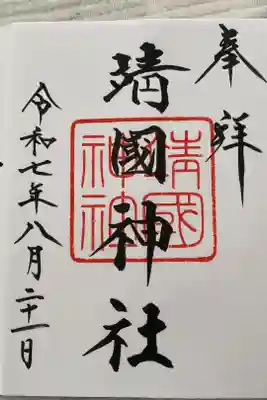 奉拝
靖國神社
靖國神社
令和七年八月二十一日